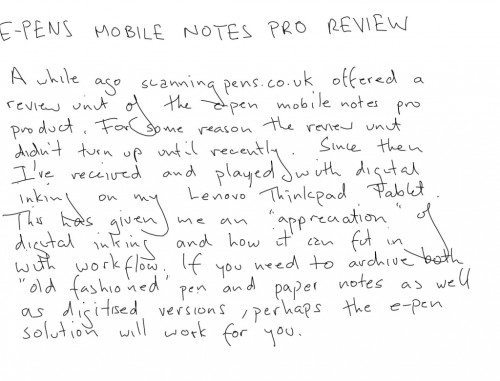 E-PENS MOBILE NOTES PRO REVIEW
A while ago scanningpens.co.uk offered a
review unit of the epen mobile notes pro
product. For some reason the review unit
didn't turn up until recently. Since then
I've received and played with digital
inking on my Lenovo Thinkpad Tablet.
This has given me an "appreciation" of
digital inking and how it can fit in
with workflow. If you need to archive both
"old fashioned" pen and paper notes as well
as digitised versions, perhaps the e-pen
solution will work for you.